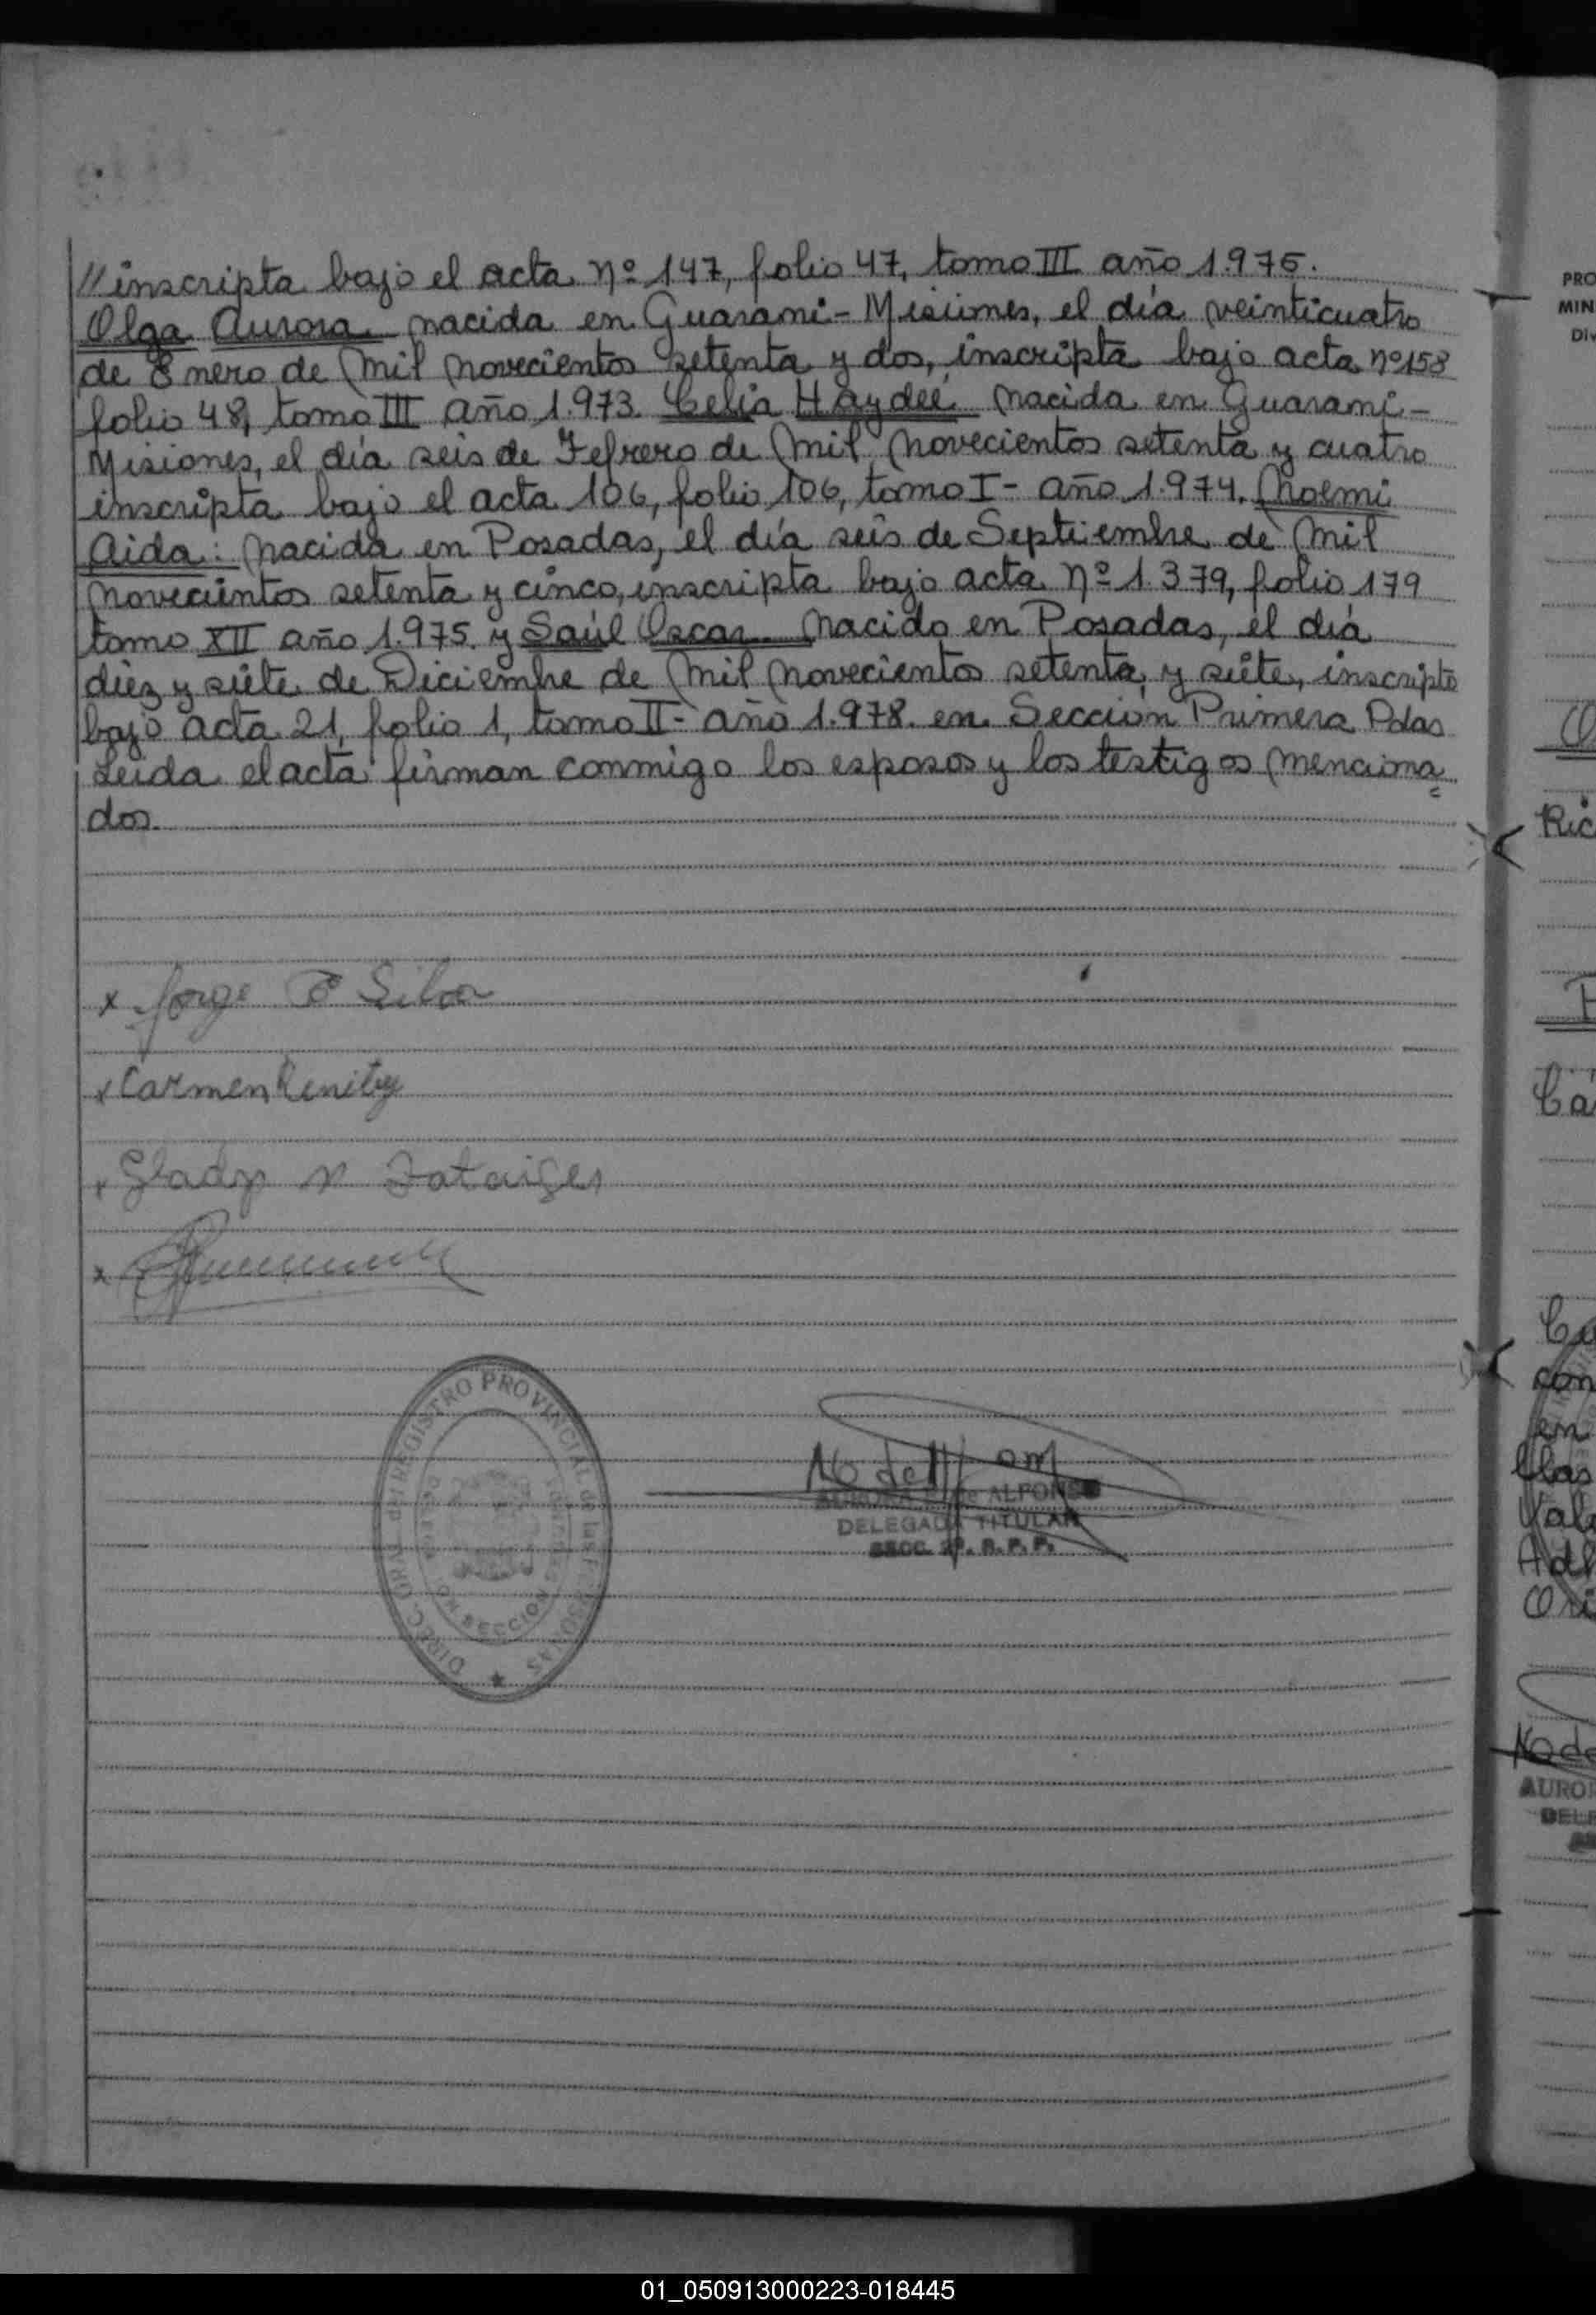 // inscripta bajo el acta nº 147, folio 47, tomo III año 1.975.
Olga Aurora nacida en Guarani - Misiones, el día veinticuatro
de Enero de Mil Novecientos setenta y dos, inscripta bajo acta nº 158
folio 48, tomo III año 1.973. Celia Haydeé nacida en Guarani -
Misiones, el día seis de Febrero de Mil Novecientos setenta y cuatro
inscripta bajo el acta 106, folio 106, tomo I - año 1.974. Noemi
Aida: nacida en Posadas, el día seis de Septiembre de Mil
Novecientos setenta y cinco, inscripta bajo acta nº 1.379, folio 179
tomo XII año 1.975. y Saúl Oscar nacido en Posadas, el día
diez y siete de Diciembre de Mil Novecientos setenta y siete, inscripto
bajo acta 21, folio 1, tomo II - año 1.978. en Sección Primera Pdas
Leida el acta firman conmigo los esposos y los testigos menciona=
dos.
x Jorge Silva
x Carmen
x Gladys N
x
DIREC. GRAL. del REGISTRO PROVINCIAL de las PERSONAS
SECCION
AURORA de ALFONSO
DELEGADA TITULAR
SECC. 2ª. R. P. P.
PRO
MIN
Div
Ric
Ca
con
en
AUROR
DELE
01_050913000223-018445